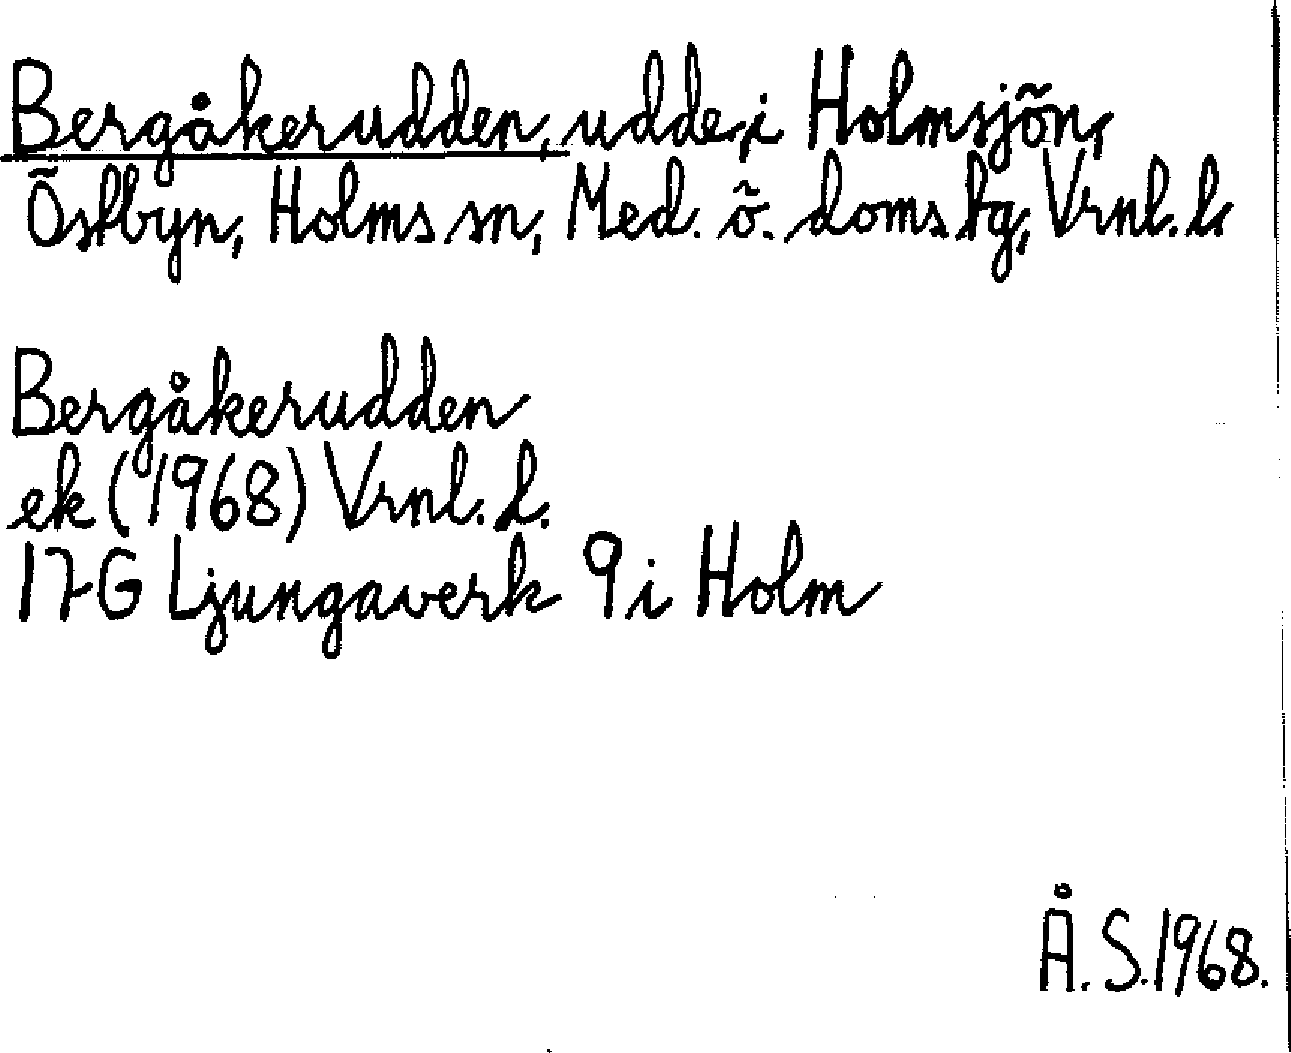 Bergåkerudden, udde, i Holmsjön,
Östbyn, Holms sn, Med. ö. doms tg, Vrnl. l.
Bergåkerudden
ek (1968) Vrnl. l.
17 G Ljungaverk 9 i Holm
Å. S. 1968.